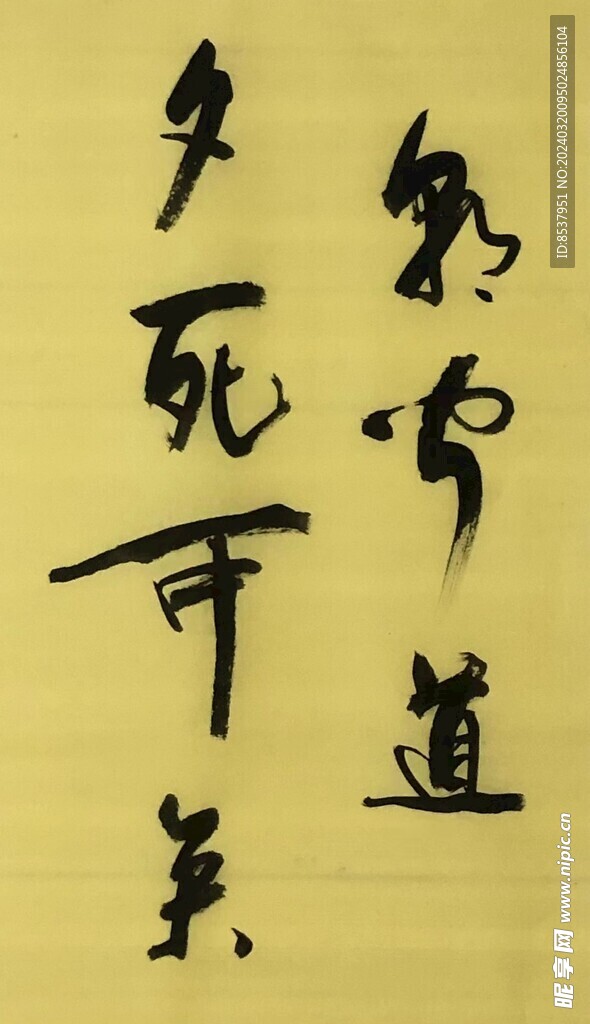 朝闻道
夕死可矣
ID:8537951 NO:20240320095024856104
昵享网 www.nipic.cn